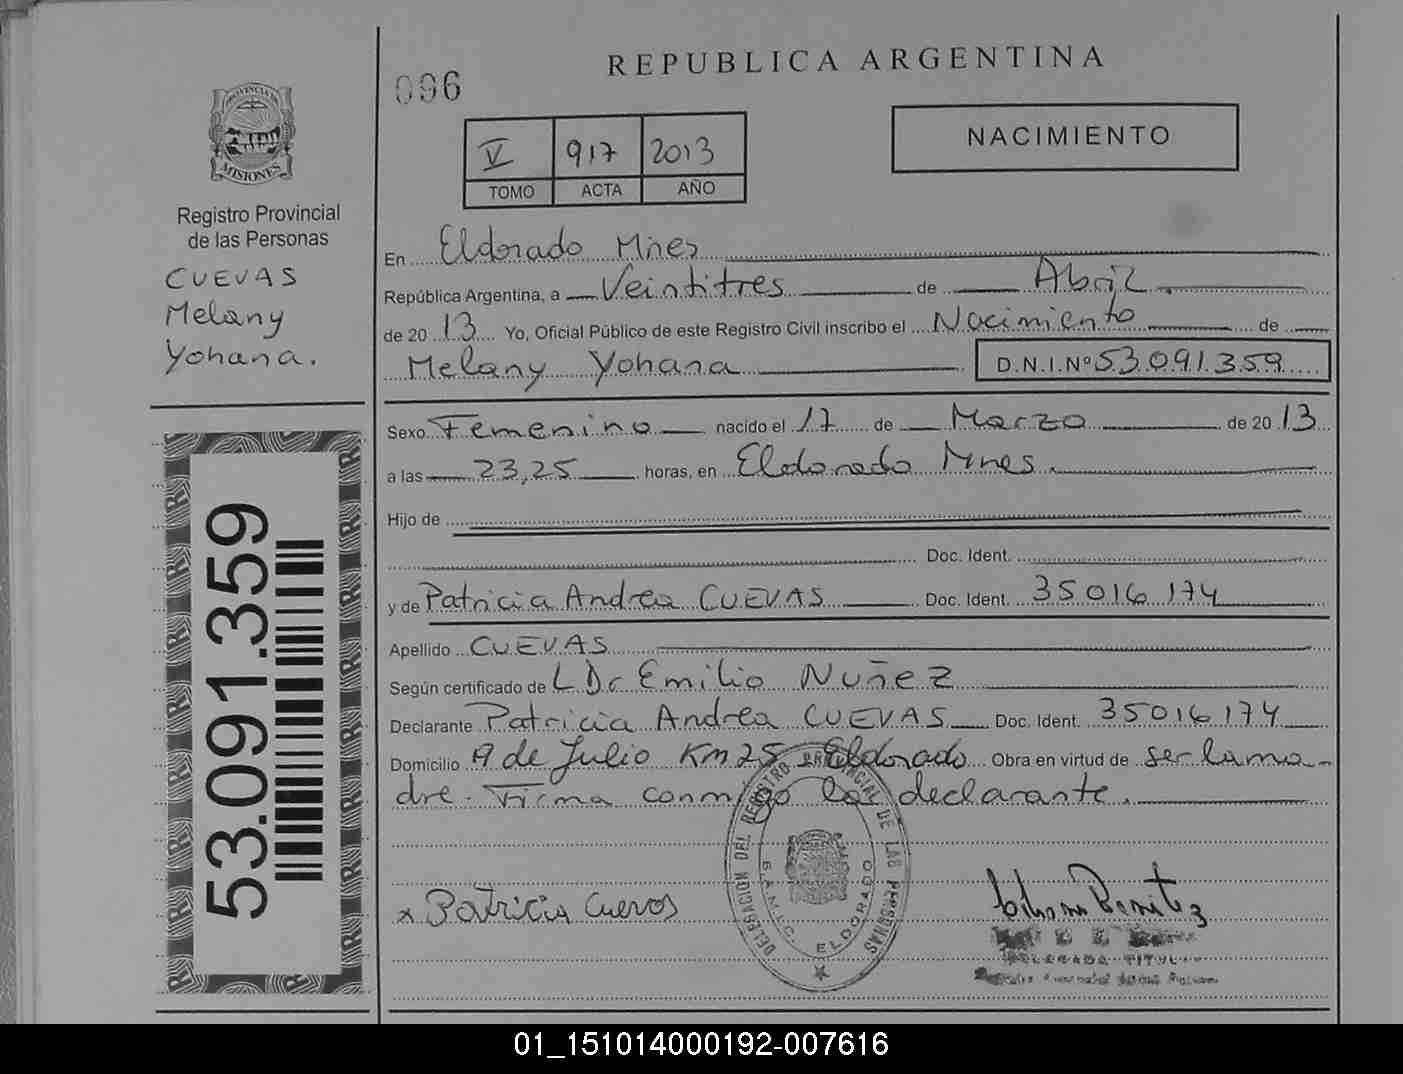 PROVINCIA DE
MISIONES
Registro Provincial
de las Personas
CUEVAS
Melany
Yohana.
53.091.359
096
REPUBLICA ARGENTINA
V 917 2013
TOMO ACTA AÑO
NACIMIENTO
En Eldorado Mnes
República Argentina, a Veintitres de Abril
de 2013 Yo, Oficial Público de este Registro Civil inscribo el Nacimiento de
Melany Yohana D.N.I.Nº 53.091.359
Sexo Femenino nacido el 17 de Marzo de 2013
a las 23,25 horas, en Eldorado Mnes.
Hijo de
Doc. Ident.
y de Patricia Andrea CUEVAS Doc. Ident. 35016174
Apellido CUEVAS
Según certificado de L Dr Emilio Nuñez
Declarante Patricia Andrea CUEVAS Doc. Ident. 35016174
Domicilio 9 de Julio Km 25 Eldorado Obra en virtud de ser la ma-
dre. Firma conmigo la declarante.
DELEGACION DEL REGISTRO PROVINCIAL DE LAS PERSONAS
ELDORADO
x Patricia Cuevas
01_151014000192-007616